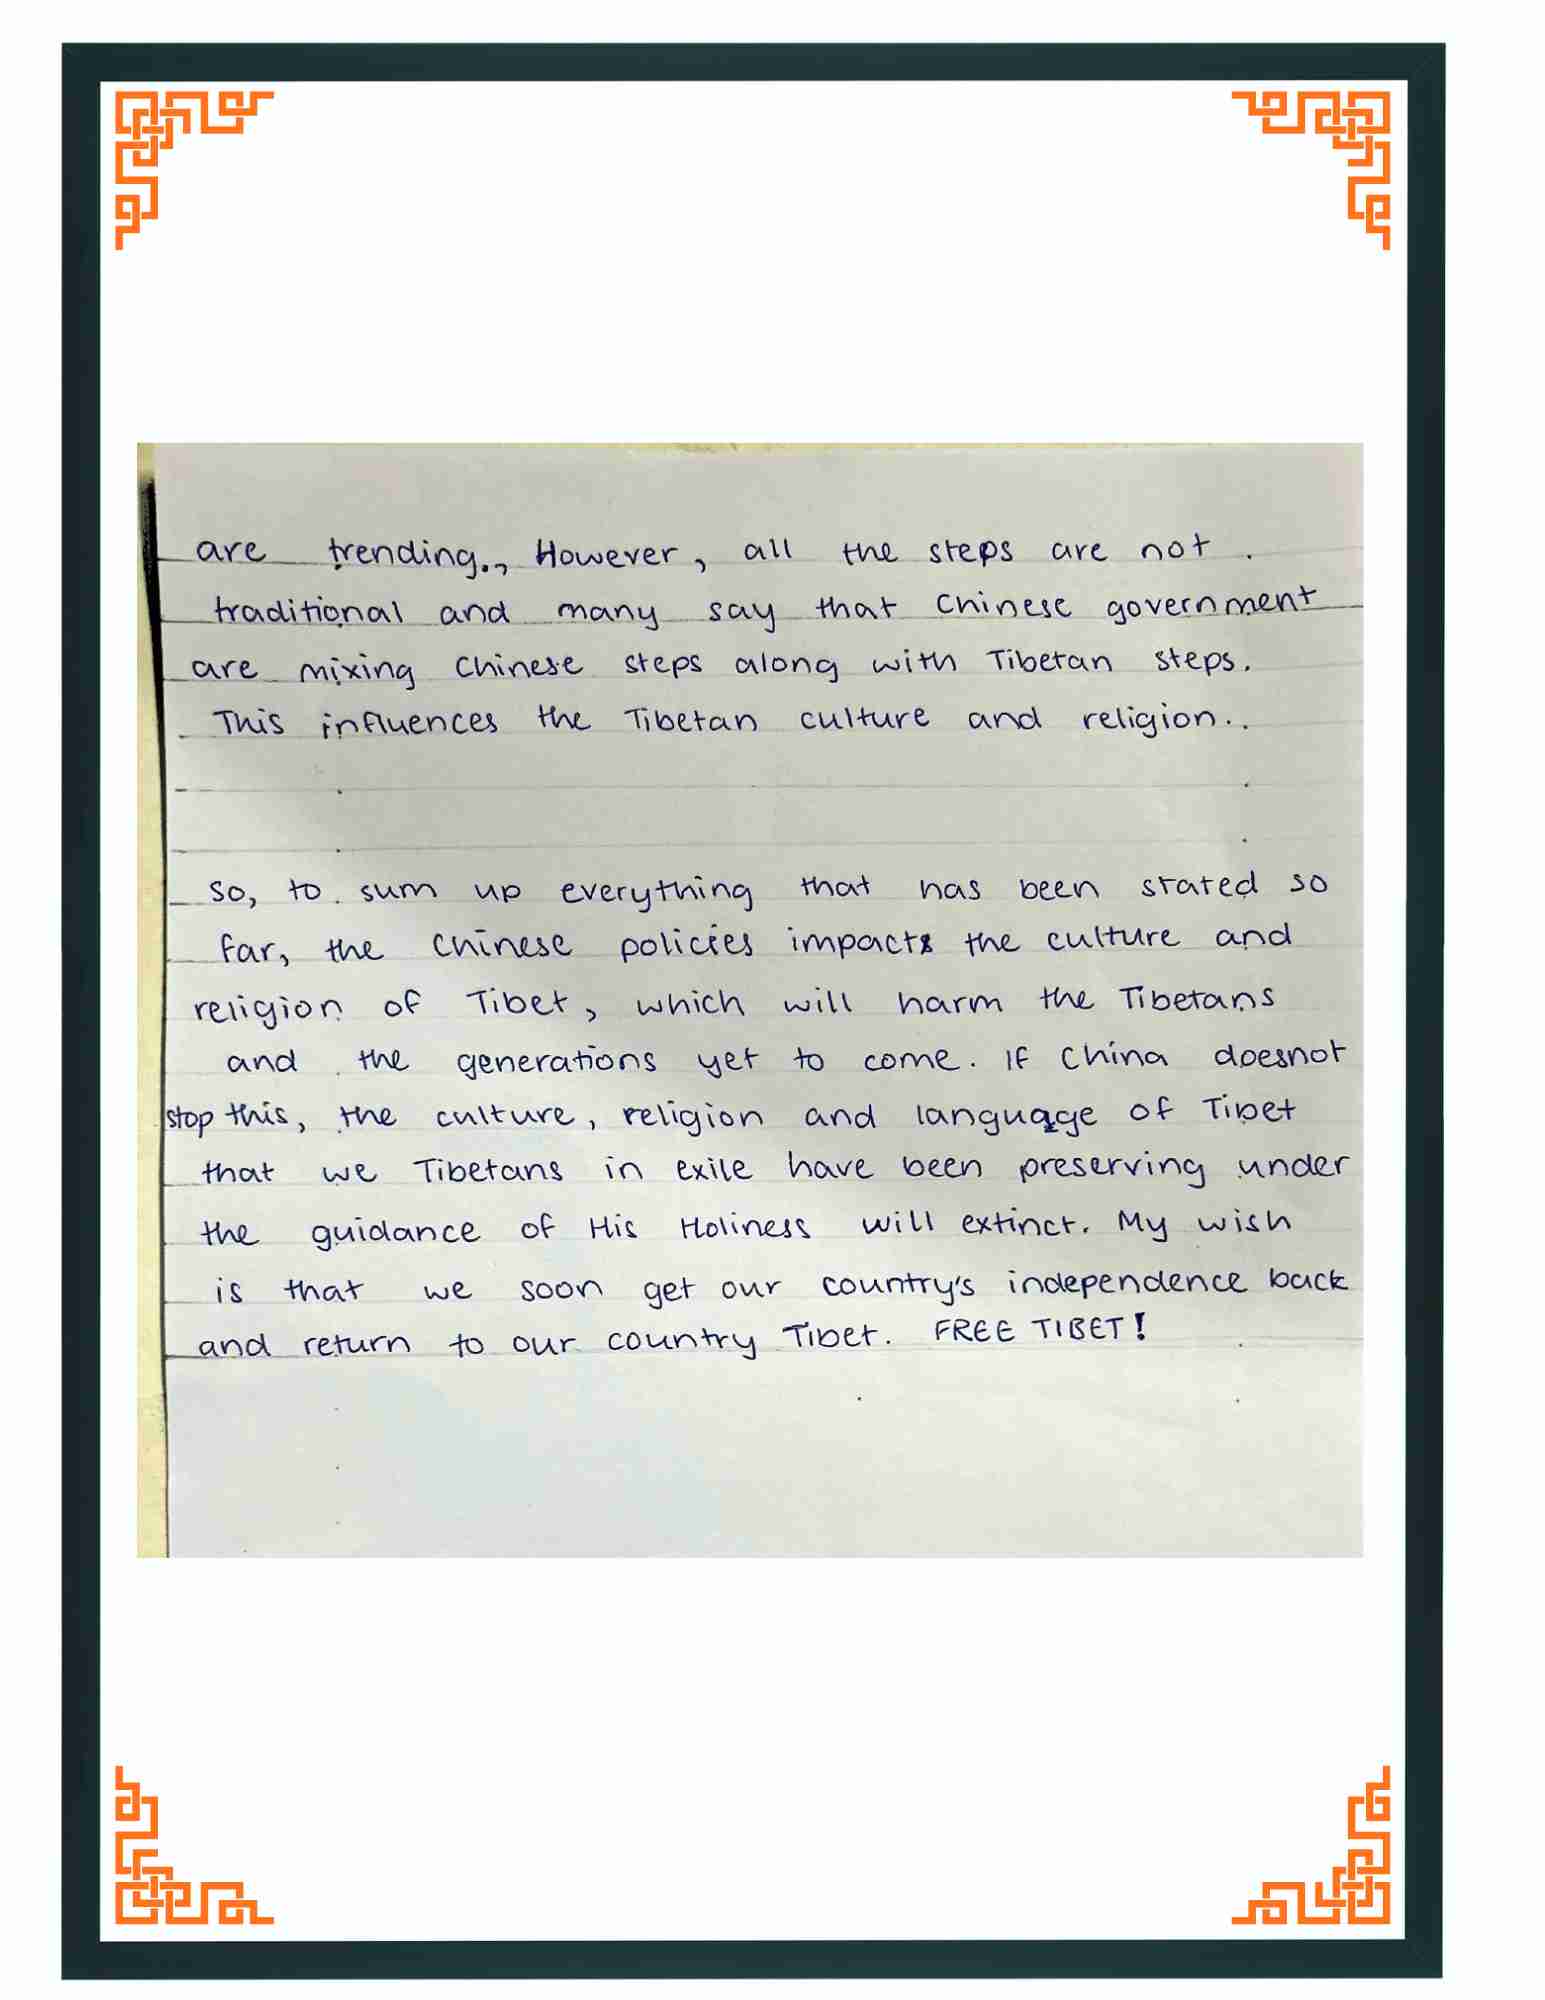 are trending., However, all the steps are not
traditional and many say that Chinese government
are mixing Chinese steps along with Tibetan steps.
This influences the Tibetan culture and religion.
So, to sum up everything that has been stated so
far, the Chinese policies impacts the culture and
religion of Tibet, which will harm the Tibetans
and the generations yet to come. If China doesnot
stop this, the culture, religion and language of Tibet
that we Tibetans in exile have been preserving under
the guidance of His Holiness will extinct. My wish
is that we soon get our country's independence back
and return to our country Tibet. FREE TIBET!